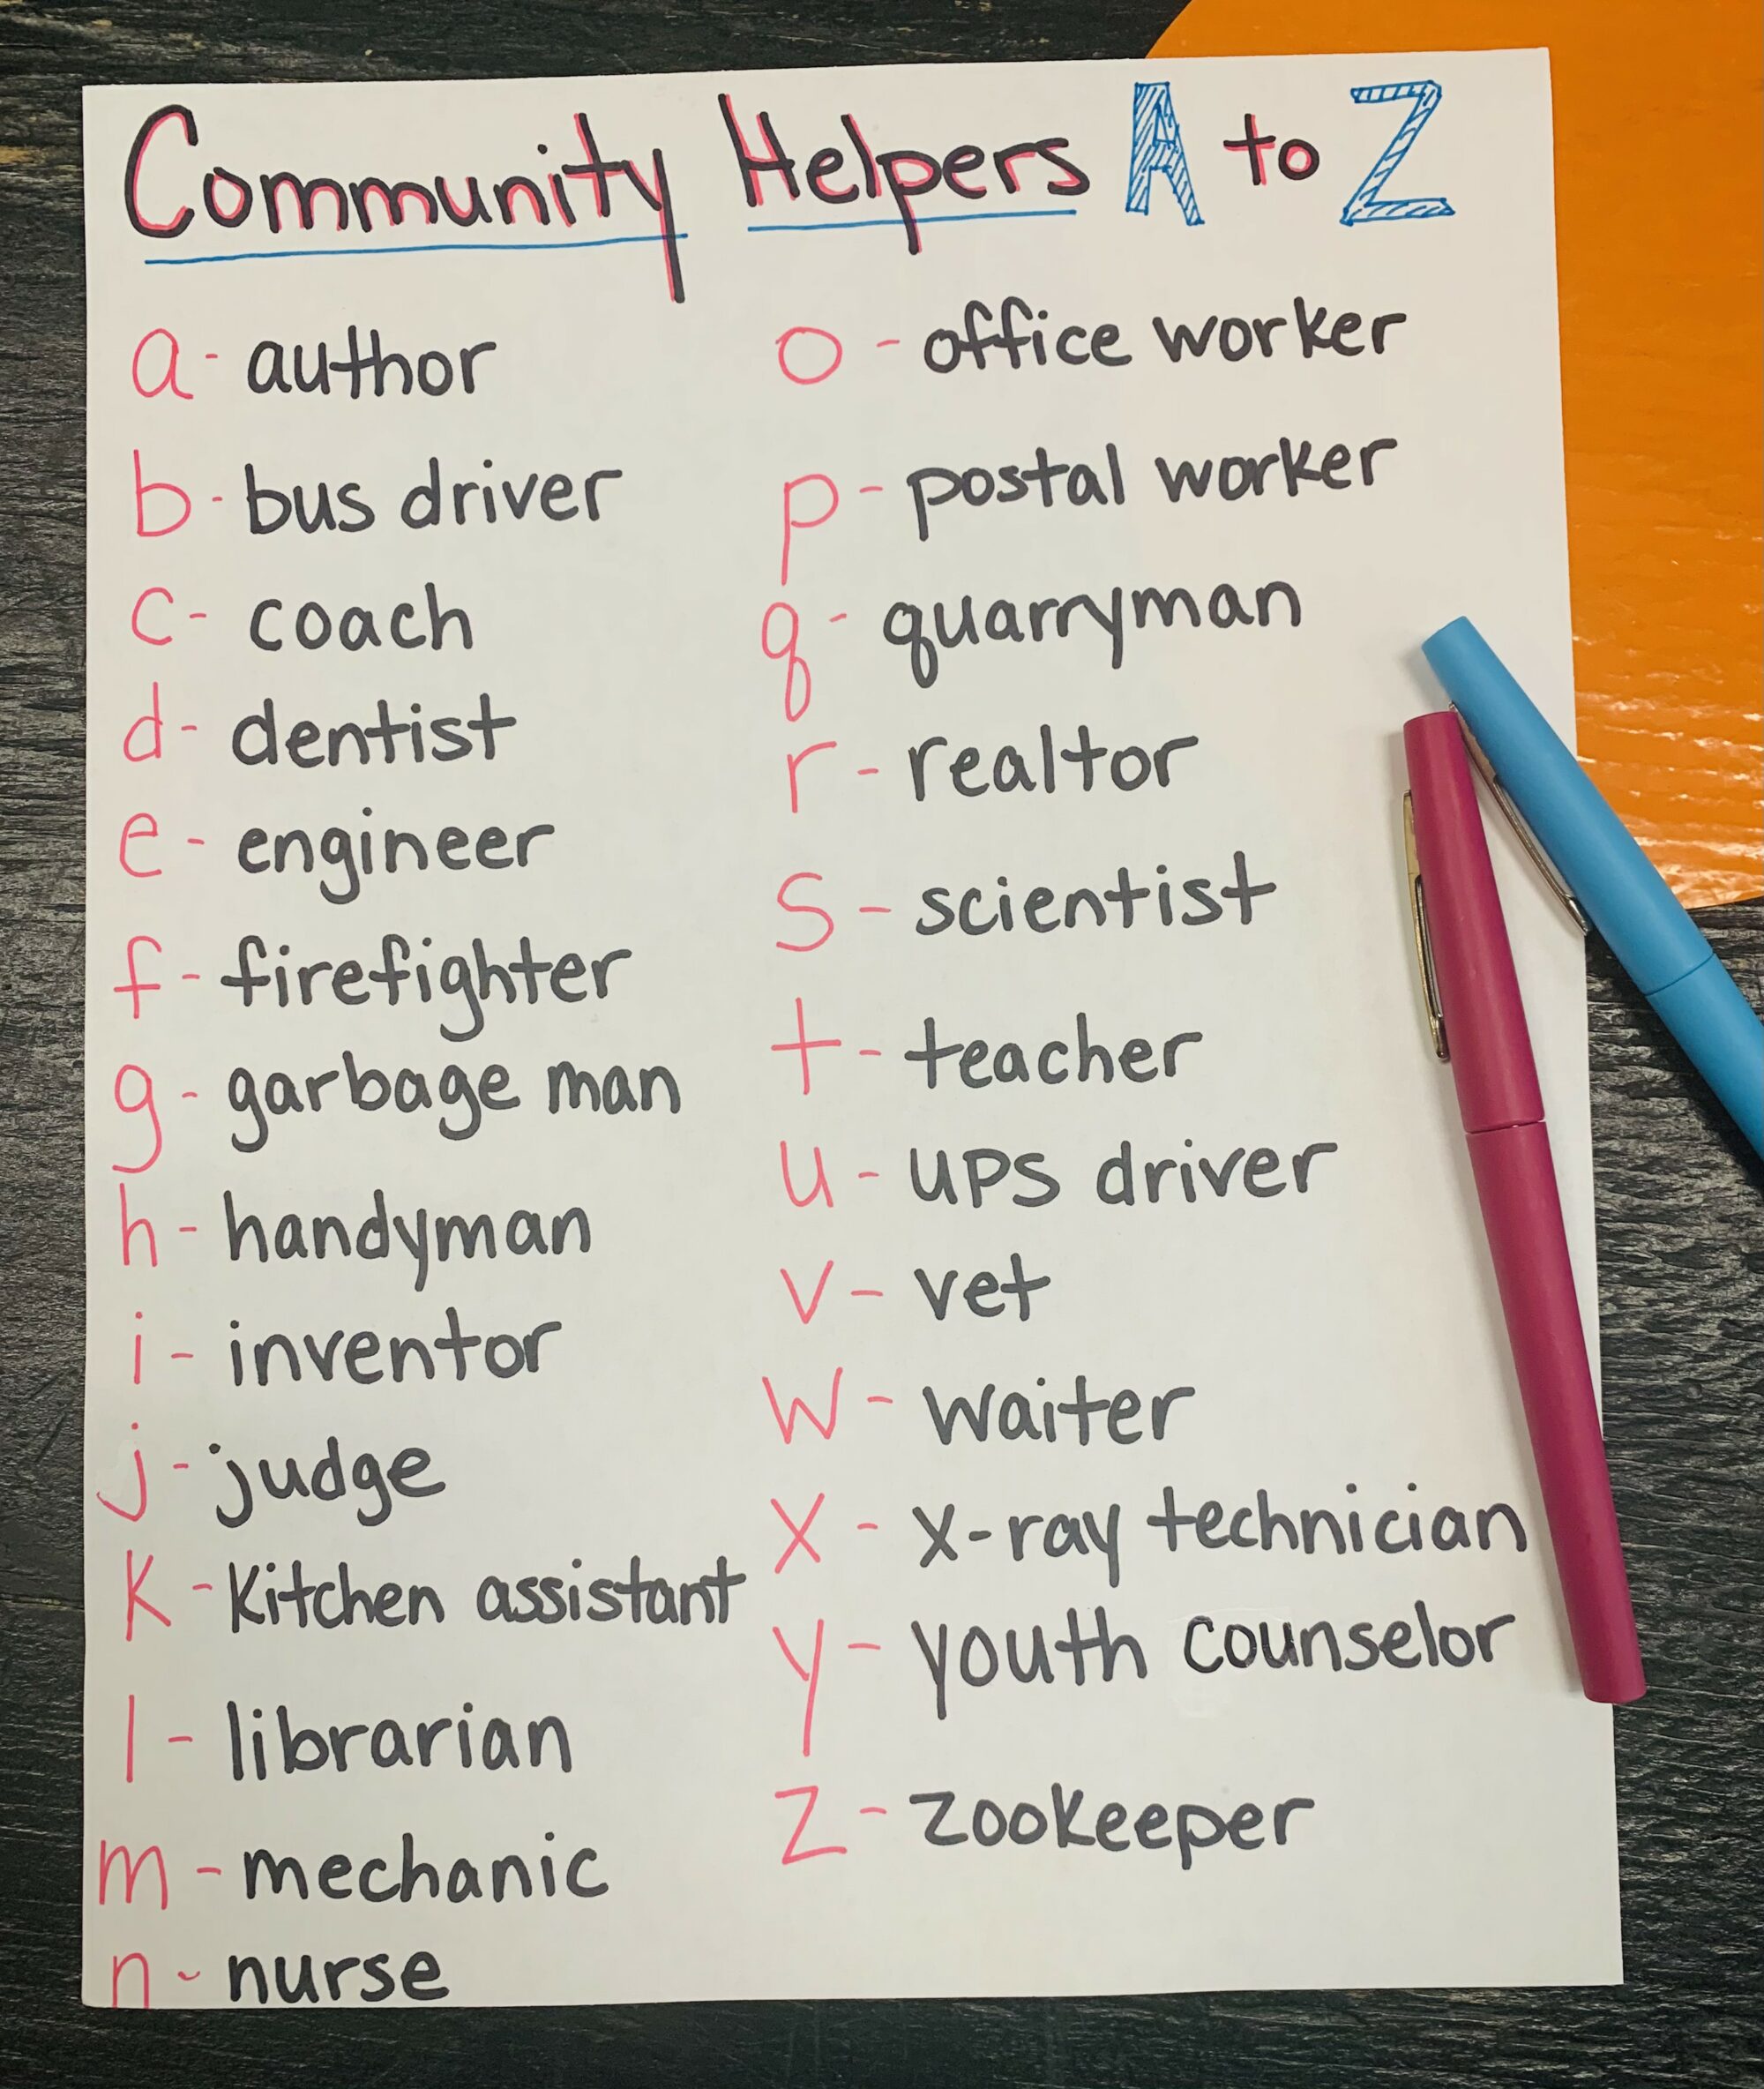 Community Helpers A to Z
a - author
b - bus driver
c - coach
d - dentist
e - engineer
f - firefighter
g - garbage man
h - handyman
i - inventor
j - judge
K - Kitchen assistant
l - librarian
m - mechanic
n - nurse
o - office worker
p - postal worker
q - quarryman
r - realtor
S - scientist
t - teacher
u - UPS driver
v - vet
W - Waiter
X - X-ray technician
y - youth counselor
Z - Zookeeper